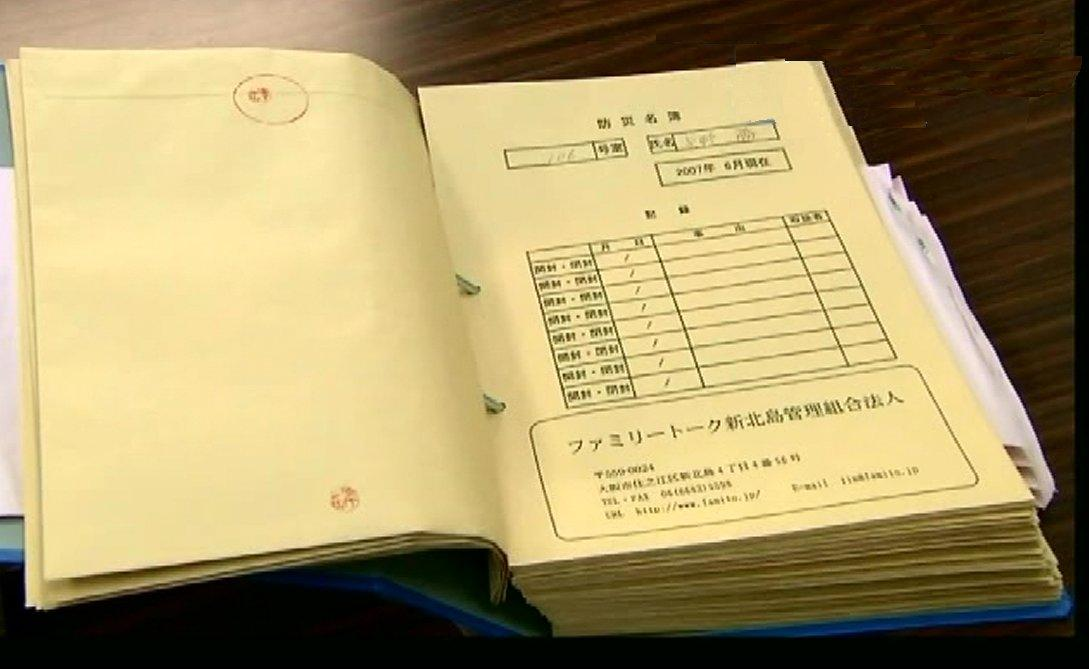 防災名簿
106 号室
氏名
2007年 6月現在
記 録
月 日 事 由 取扱者
開封・閉封 /
開封・閉封 /
開封・閉封 /
開封・閉封 /
開封・閉封 /
開封・閉封 /
開封・閉封 /
開封・閉封 /
ファミリートーク新北島管理組合法人
〒559-0024
大阪市住之江区新北島4丁目4番56号
TEL・FAX
E-mail
URL http://www.famito.jp/